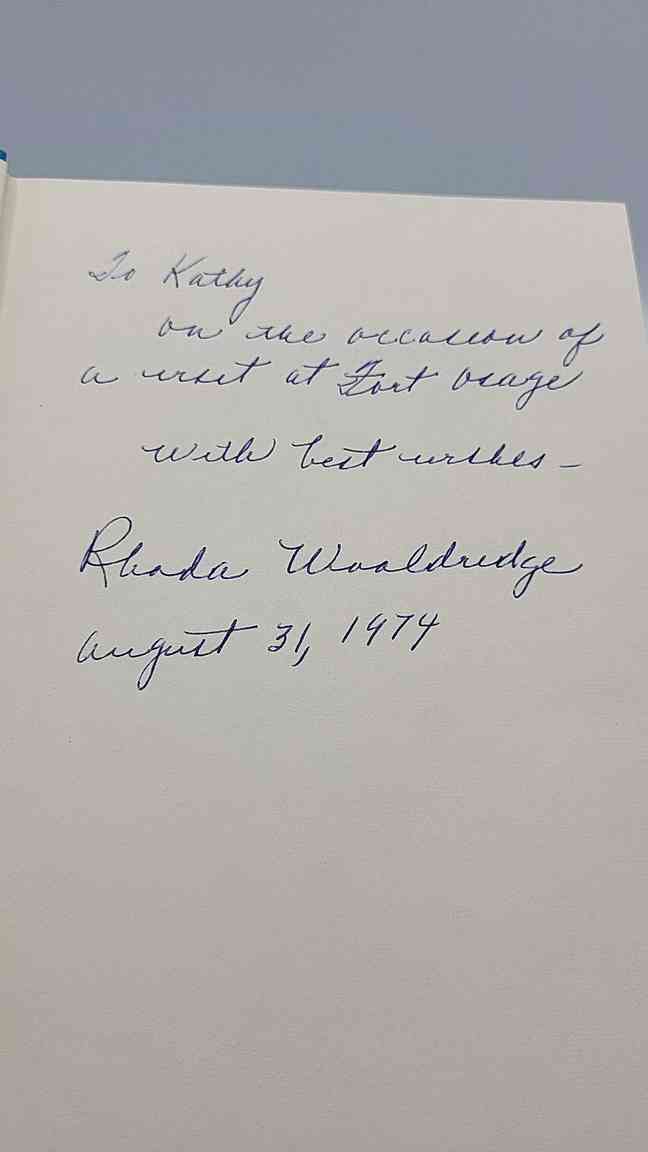 To Kathy
on the occasion of
a visit at Fort Osage
with best wishes –
Rhoda Wooldridge
August 31, 1974